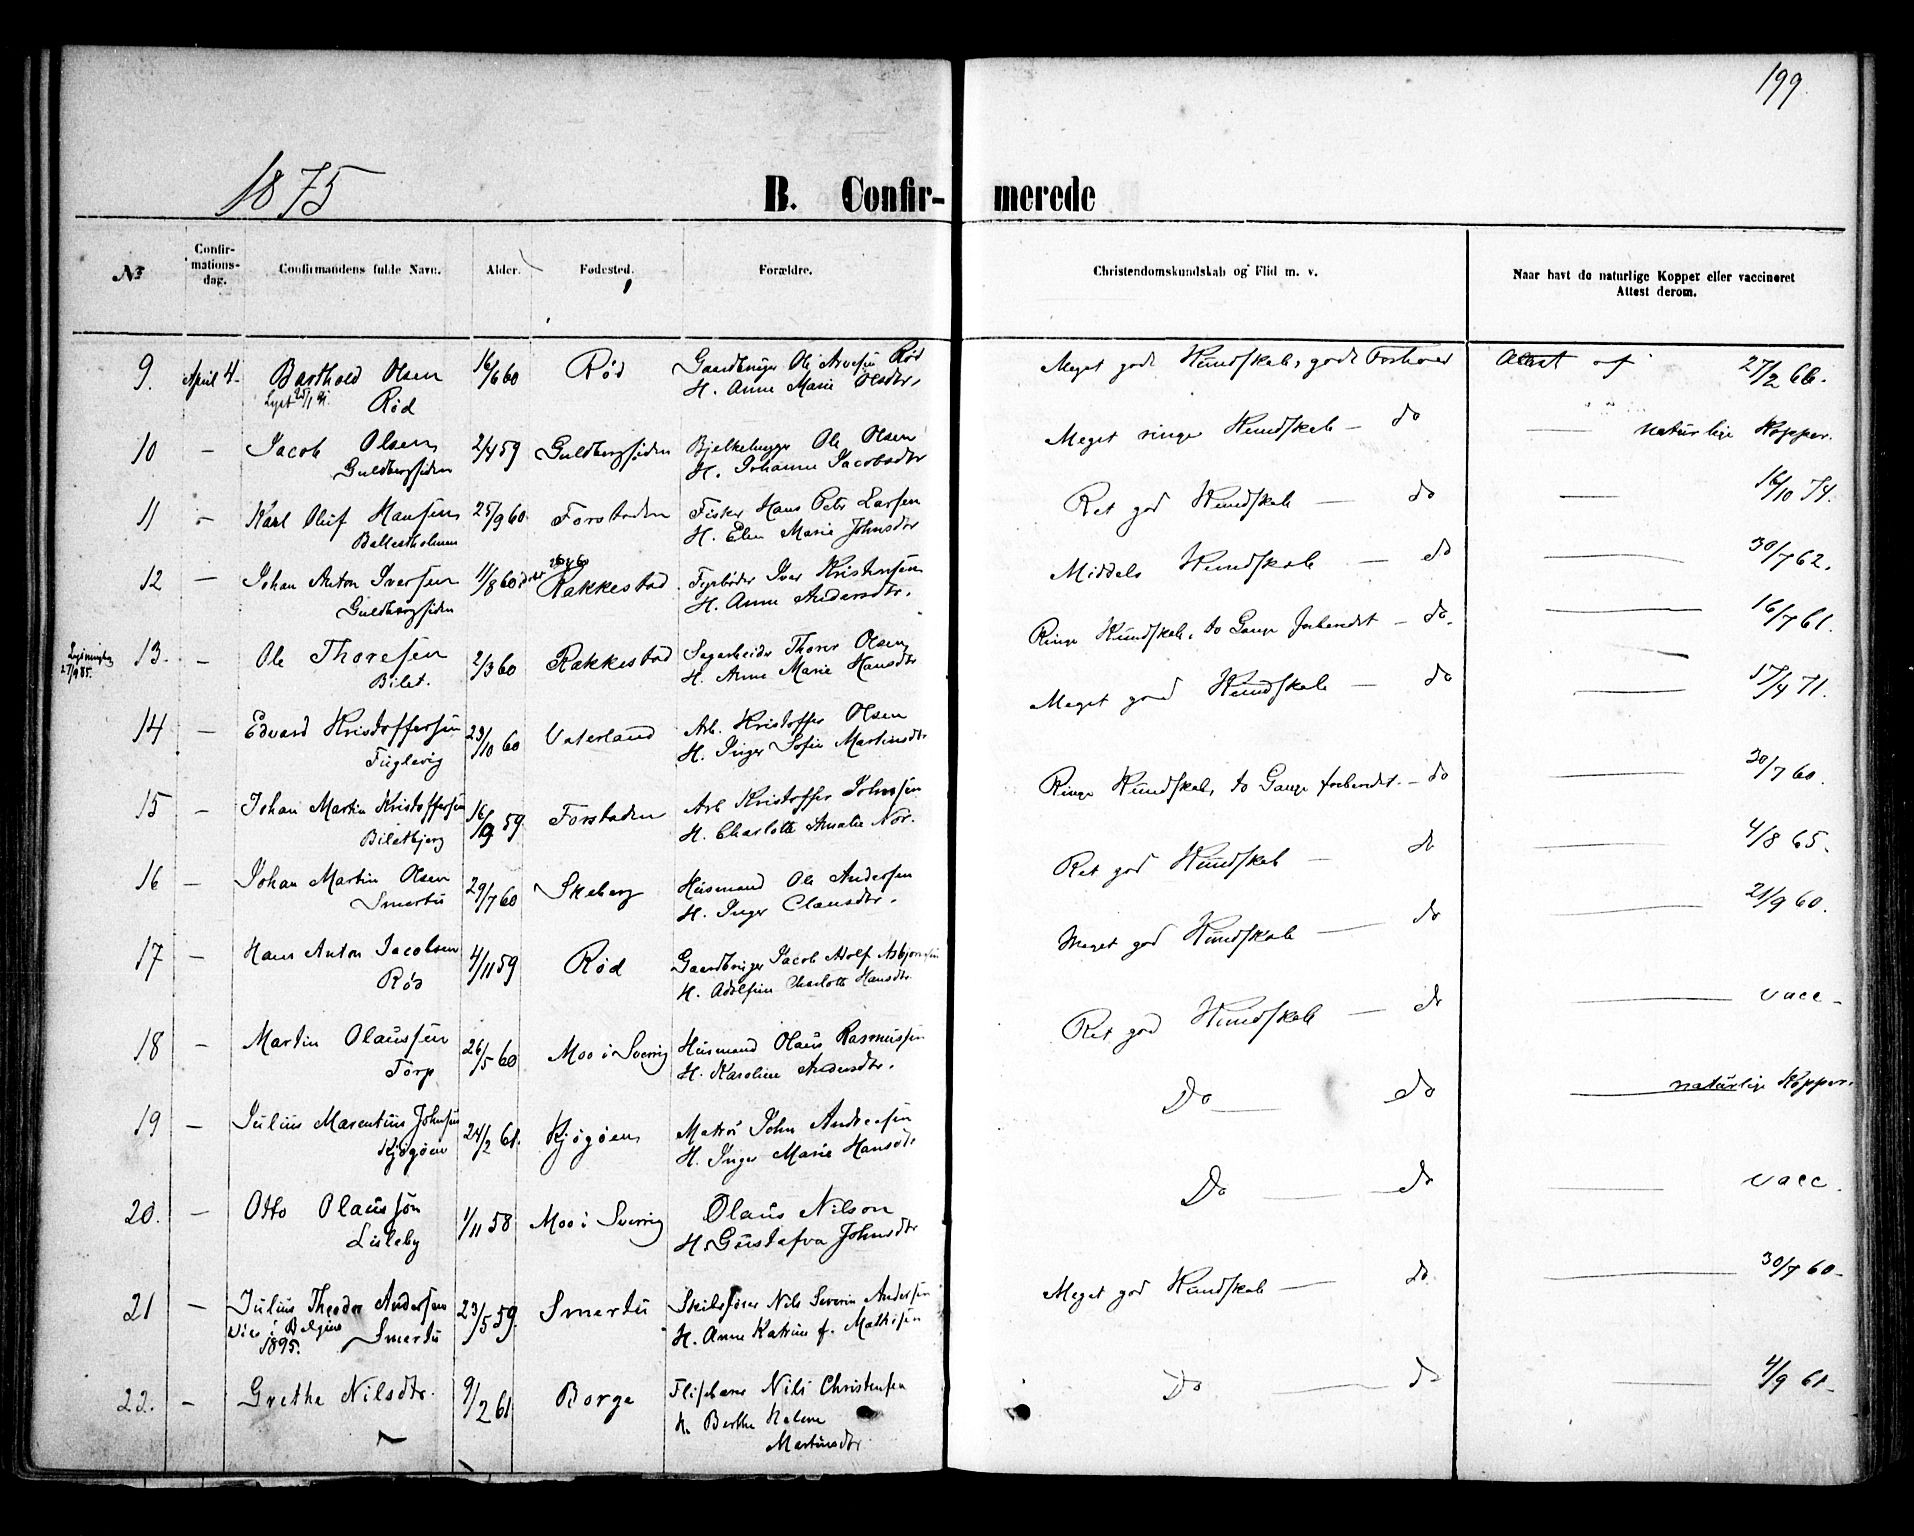 199
1875
B. Confir- merede
No
Confir-
mations-
dag.
Confirmandens fulde Navn.
Alder.
Fødested.
Forældre.
Christendomskundskab og Flid m. v.
Naar havt de naturlige Kopper eller vaccineret
Attest derom.
9. April 4. Barthold Olsen 16/6 60 Rød Gaardbruger Ole Arvesen Rød Meget god Kundskab, godt Forhold Attest af 27/2 66.
Rød H. Anne Marie Olsdtr.
10 - Jacob Olsen 2/4 59 Guldbergsiden Bjelkehugger Ole Olsen Meget ringe Kundskab - do — naturlige Kopper.
Guldbergsiden H. Johanne Jacobsdtr
11 - Karl Oluf Hansen 25/9 60. Forstaden Fisker Hans Peter Larsen Ret god Kundskab — do — 16/10 74.
H. Elen Marie Johnsdtr
12 - Johan Anton Iversen 11/8 60 Rakkestad Fyrbøder Iver Kristensen Middels Kundskab — do — 30/7 62.
Guldbergsiden H. Anne Andersdtr.
13. - Ole Thoresen 2/3 60 Rakkestad Sagarbeider Thorer Olsen Ringe Kundskab, to Gange forberedt - do. — 16/7 61.
27/9 85. Bilet. H. Anne Marie Hansdtr
14 - Edvard Kristoffersen 23/10 60 Vaterland Arb. Kristoffer Olsen Meget god Kundskab — do — 17/4 71.
Fuglevig H. Inger Sofie Martinsdtr
15 - Johan Martin Kristoffersen 16/9 59. Forstaden Arb Kristoffer Johnsen Ringe Kundskab, to Gange forberedt. - do — 30/7 60.
Biletbjerg H. Charlotte Amalie Nor.
16 - Johan Martin Olsen 29/7 60 Skeberg Husmand Ole Andersen Ret god Kundskab — do — 4/8 65.
Smertu H. Inger Clausdtr.
17 - Hans Anton Jacobsen 4/11 59 Rød Gaardbruger Jacob Adolf Asbjørnsen Meget god Kundskab — do — 21/9 60.
Rød H. Adolfine Charlotte Hansdtr.
18 - Martin Olaussen 26/5 60 Moo i Sverrig Husmand Olaus Rasmussen Ret god Kundskab — do — vacc -
Torp H. Karoline Andersdtr.
19 - Julius Marentius Johnsen 24/2 61. Kjøgøen Matros John Andresen Do — do — naturlige Kopper.
Kjøgøen H. Inger Marie Hansdtr
20. - Otto Olausson 1/11 58 Moo i Sverrig Olaus Nilson Do — do — vacc.
Lisleby H. Gustafva Johnsdtr
21 - Julius Theodor Andersen 23/5 59. Smertu Skibsfører Nils Severin Andersen Meget god Kundskab — do. — 30/7 60-
i Belgien Smertu H. Anne Katrine f. Mathisen
1895.
22. - Grethe Nilsdtr. 9/2 61 Borge Flisebærer Nils Christensen Do — do — 4/9 61-
H. Berthe Helene
Martinsdtr.